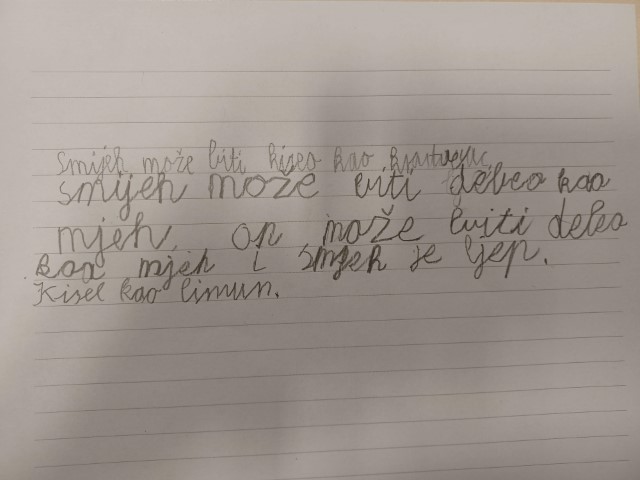 Smijeh može biti kiseo kao
smijeh može biti debeo kao
mjeh. on može biiti debeo
kao mjeh i smjeh je ljep.
Kisel kao limun.